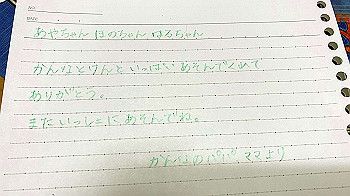 NO.
DATE
あやちゃん ほのちゃん はるちゃん
かんなとりんと いっぱい あそんでくれて
ありがとう。
また いっしょに あそんでね。
かんなのパパ ママより